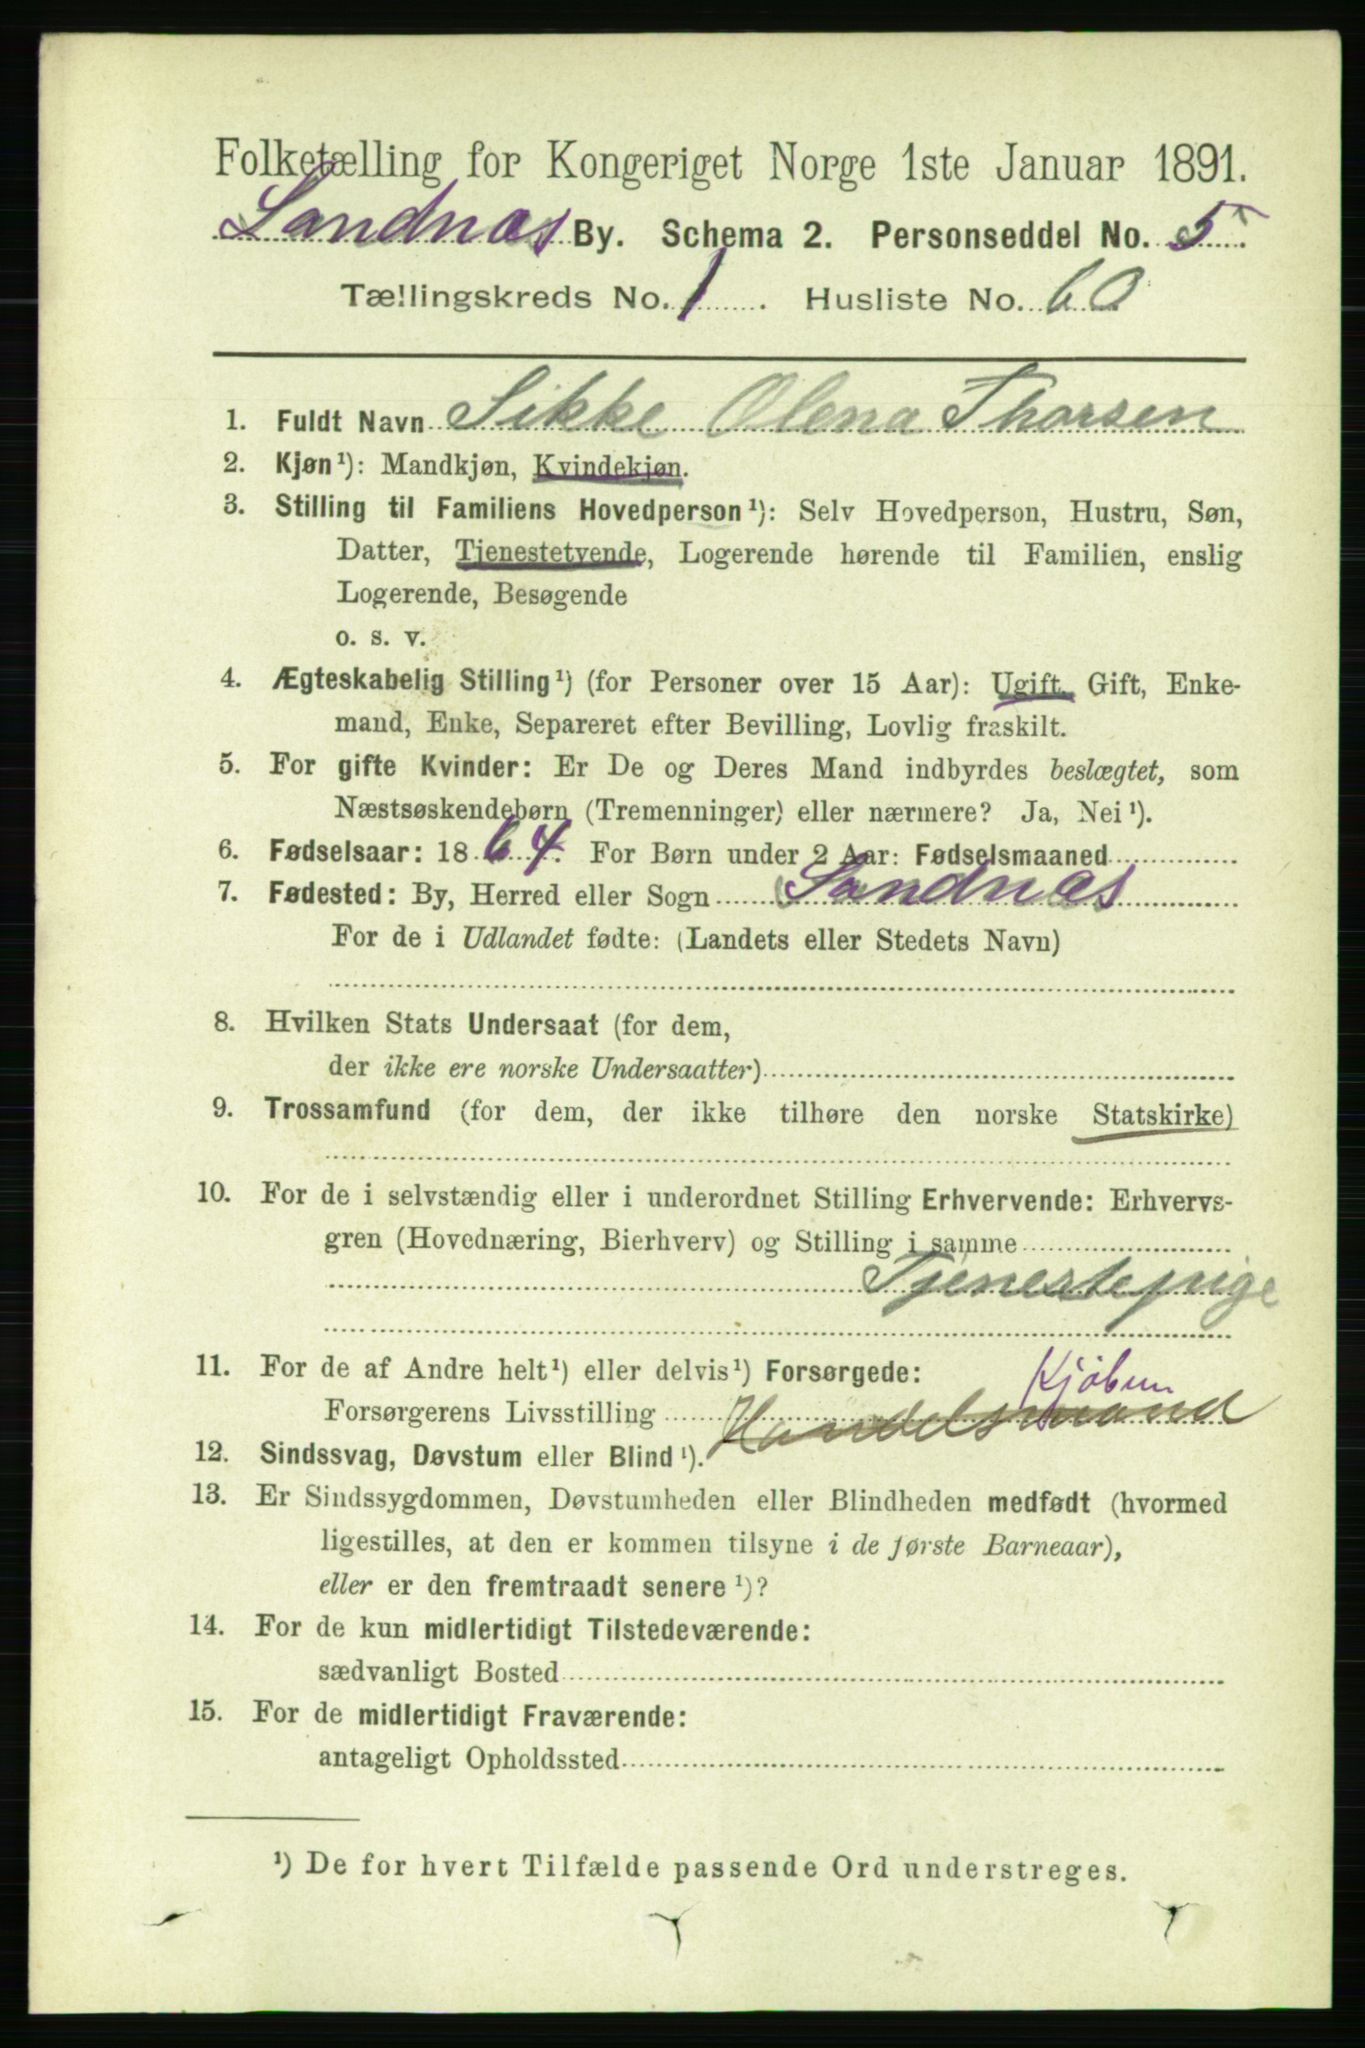 Folketælling for Kongeriget Norge 1ste Januar 1891.
Sandnæs By. Schema 2. Personseddel No. 5.
Tællingskreds No. 1. Husliste No. 60
1. Fuldt Navn Sikke Olena Thorsen
2. Kjøn¹): Mandkjøn, Kvindekjøn.
3. Stilling til Familiens Hovedperson¹): Selv Hovedperson, Hustru, Søn,
Datter, Tjenestetyende, Logerende hørende til Familien, enslig
Logerende, Besøgende
o. s. v.
4. Ægteskabelig Stilling¹) (for Personer over 15 Aar): Ugift, Gift, Enke-
mand, Enke, Separeret efter Bevilling, Lovlig fraskilt.
5. For gifte Kvinder: Er De og Deres Mand indbyrdes beslægtet, som
Næstsøskendebørn (Tremenninger) eller nærmere? Ja, Nei¹).
6. Fødselsaar: 1864. For Børn under 2 Aar: Fødselsmaaned
7. Fødested: By, Herred eller Sogn Sandnæs
For de i Udlandet fødte: (Landets eller Stedets Navn)
8. Hvilken Stats Undersaat (for dem,
der ikke ere norske Undersaatter)
9. Trossamfund (for dem, der ikke tilhøre den norske Statskirke)
10. For de i selvstændig eller i underordnet Stilling Erhvervende: Erhvervs-
gren (Hovednæring, Bierhverv) og Stilling i samme
Tjenestepige
11. For de af Andre helt¹) eller delvis¹) Forsørgede:
Kjøbm
Forsørgerens Livsstilling Handelsmand
12. Sindssvag, Døvstum eller Blind¹).
13. Er Sindssygdommen, Døvstumheden eller Blindheden medfødt (hvormed
ligestilles, at den er kommen tilsyne i de første Barneaar),
eller er den fremtraadt senere¹)?
14. For de kun midlertidigt Tilstedeværende:
sædvanligt Bosted
15. For de midlertidigt Fraværende:
antageligt Opholdssted
¹) De for hvert Tilfælde passende Ord understreges.